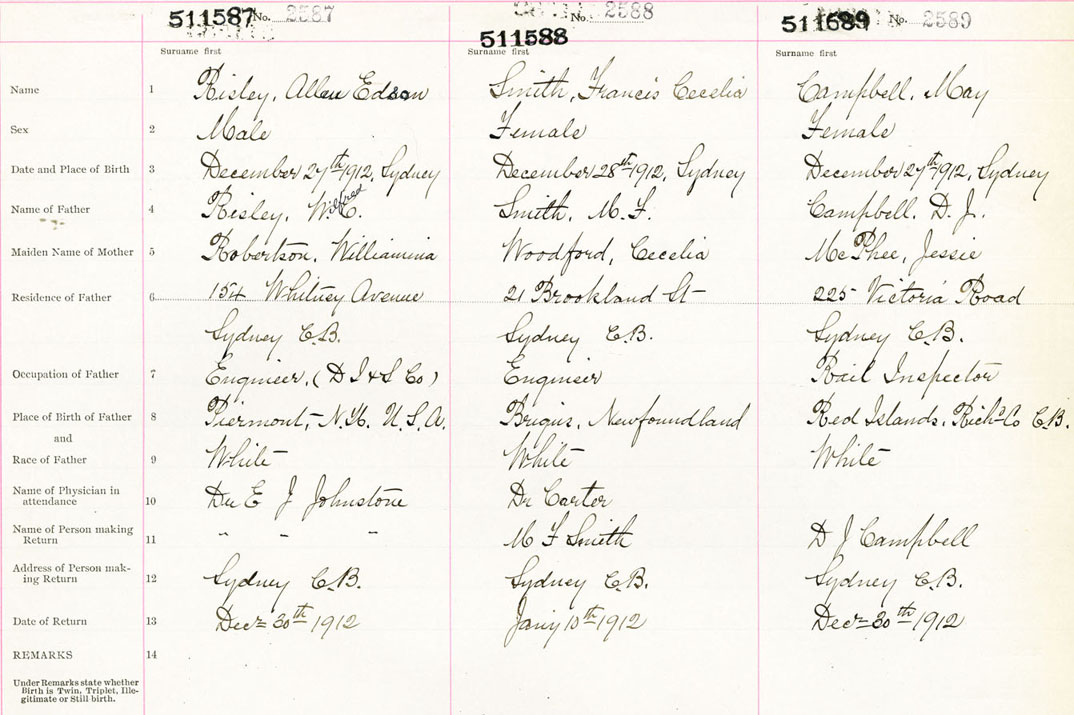 511587 No. 2587 No. 2588 511689 No. 2589
511588
Surname first Surname first Surname first
Name 1 Risley, Allen Edson Smith, Francis Cecelia Campbell, May
Sex 2 Male Female Female
Date and Place of Birth 3 December 27th 1912, Sydney December 28th 1912, Sydney December 27th 1912, Sydney
Name of Father 4 Risley, Wilfred C. Smith, M. F. Campbell. D. J.
Maiden Name of Mother 5 Robertson, Williamina Woodford, Cecelia McPhee, Jessie
Residence of Father 6 154 Whitney Avenue 21 Brookland St 225 Victoria Road
Sydney C.B. Sydney C.B. Sydney C.B.
Occupation of Father 7 Engineer, (D I & S Co) Engineer Rail Inspector
Place of Birth of Father 8 Piermont, N.Y. U.S.A. Brigus, Newfoundland Red Islands, Richd Co C.B.
and
Race of Father 9 White White White
Name of Physician in
attendance 10 Dr E J Johnstone Dr Carter
Name of Person making
Return 11 " " " M F Smith D J Campbell
Address of Person mak-
ing Return 12 Sydney C.B. Sydney C.B. Sydney C.B.
Date of Return 13 Decr 30th 1912 Jany 10th 1912 Decr 30th 1912
REMARKS 14
Under Remarks state whether
Birth is Twin, Triplet, Ille-
gitimate or Still birth.